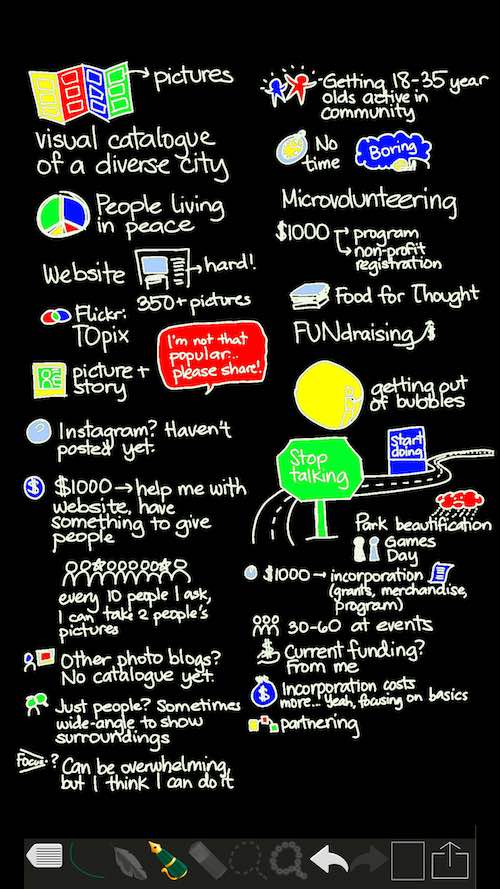 pictures
visual catalogue
of a diverse city
People living
in peace
Website
hard!
350+ pictures
Flickr:
TOpix
I'm not that
popular...
please share!
picture +
story
Instagram? Haven't
posted yet.
$ $1000 → help me with
website, have
something to give
people
every 10 people I ask,
I can take 2 people's
pictures
Other photo blogs?
No catalogue yet.
Just people? Sometimes
wide-angle to show
surroundings
Focus ? Can be overwhelming,
but I think I can do it
Getting 18-35 year
olds active in
community
No
time
Boring
Microvolunteering
$1000 → program
→ non-profit
registration
Food for Thought
FUNdraising $
getting out
of bubbles
Stop
talking
Start
doing
Park beautification
Games
Day
$1000 → incorporation
(grants, merchandise,
program)
30-60 at events
$ Current funding?
From me
$ Incorporation costs
more... Yeah, focusing on basics
partnering